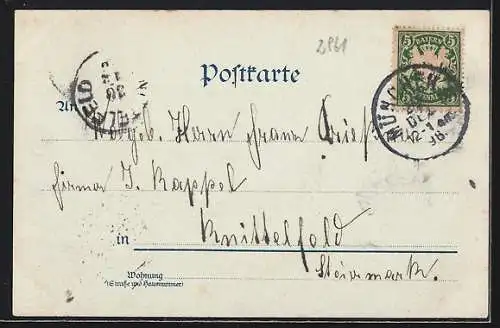 2961
BAYERN
5 5
Postkarte
MÜNCHEN
DEZ
12-1
98.
An
Wolgeb. Herrn Franz
Firma J. Kappel
Knittelfeld
in
Steiermark.
Wohnung
(Straße und Hausnummer)